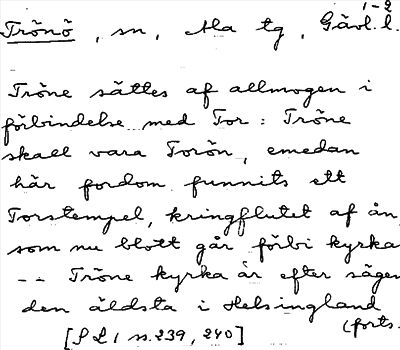 1-2
Trönö, sn, Ala tg, Gävl. l.
Tröne sättes af allmogen i
förbindelse med Tor: Tröne
skall vara Torön, emedan
här fordom funnits ett
Torstempel, kringflutet af ån,
som nu blott går förbi kyrka
-- Tröne kyrka är efter sägen
den äldsta i Helsingland
(forts.
[SL1 s. 239, 240]